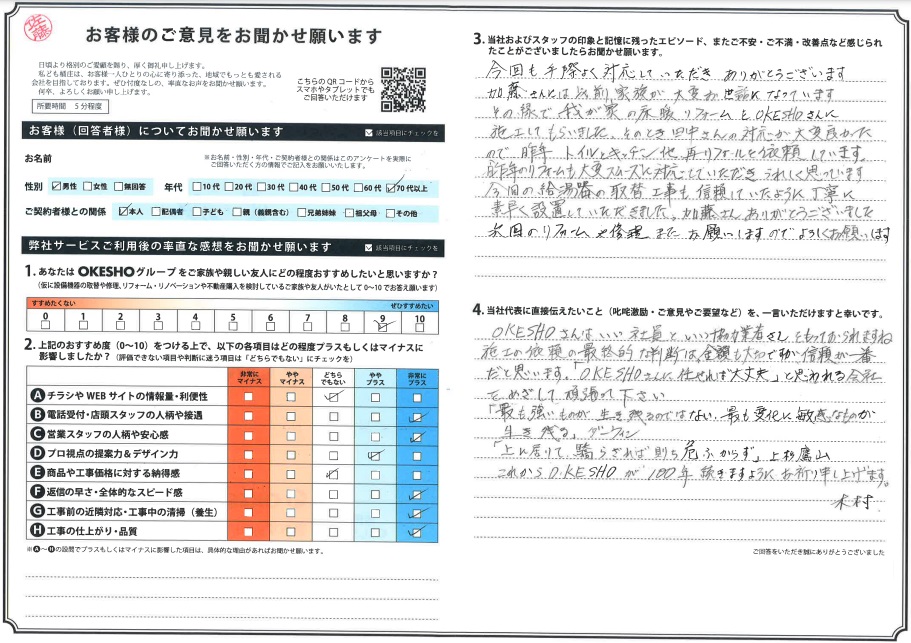 佐藤
お客様のご意見をお聞かせ願います
日頃より格別のご愛顧を賜り、厚く御礼申し上げます。
私ども桶庄は、お客様一人ひとりの心に寄り添った、地域でもっとも愛される
会社を目指しております。ぜひ忖度なしの、率直なお声をお聞かせください。
何卒、よろしくお願い申し上げます。
所要時間 5分程度
こちらのQRコードから
スマホやタブレットでも
ご回答いただけます
お客様(回答者様)についてお聞かせ願います
該当項目にチェックを
お名前
※お名前・性別・年代・ご契約者様との関係はこのアンケートを実際に
ご回答いただく方の情報でご記入をお願いいたします。
性別 男性 女性 無回答 年代 10代 20代 30代 40代 50代 60代 70代以上
ご契約者様との関係 本人 配偶者 子ども 親(義親含む) 兄弟姉妹 祖父母 その他
弊社サービスご利用後の率直な感想をお聞かせ願います
該当項目にチェックを
1. あなたはOKESHOグループをご家族や親しい友人にどの程度おすすめしたいと思いますか?
(仮に設備機器の取替や修理、リフォーム・リノベーションや不動産購入を検討しているご家族や友人がいたとして0〜10でお答え願います)
すすめたくない ぜひすすめたい
0 1 2 3 4 5 6 7 8 9 10
2. 上記のおすすめ度(0〜10)をつける上で、以下の各項目はどの程度プラスもしくはマイナスに
影響しましたか?(評価できない項目や判断に迷う項目は「どちらでもない」にチェックを)
非常にマイナス ややマイナス どちらでもない ややプラス 非常にプラス
A チラシやWEBサイトの情報量・利便性
B 電話受付・店頭スタッフの人柄や接遇
C 営業スタッフの人柄や安心感
D プロ視点の提案力&デザイン力
E 商品や工事価格に対する納得感
F 返信の早さ・全体的なスピード感
G 工事前の近隣対応・工事中の清掃(養生)
H 工事の仕上がり・品質
※A〜Hの設問でプラスもしくはマイナスに影響した項目は、具体的な理由があればお聞かせ願います。
3. 当社およびスタッフの印象と記憶に残ったエピソード、またご不安・ご不満・改善点など感じられ
たことがございましたらお聞かせ願います。
今回も手際よく対応していただきありがとうございます
加藤さんとは以前家族が大変お世話になっています
その縁で我が家の床暖リフォームをOKESHOさんに
施工してもらいました。そのとき田中さんの対応が大変良かった
ので昨年トイレとキッチン他、再リフォームを依頼しています。
昨年のリフォームも大変スムーズに対応していただきうれしく思っています
今回の給湯器の取替工事も信頼していたように丁寧に
素早く設置していただきました。加藤さんありがとうございました
次回のリフォームや修理またお願いしますのでよろしくお願いします
4. 当社代表に直接伝えたいこと(叱咤激励・ご意見やご要望など)を、一言いただけますと幸いです。
OKESHOさんはいい社員といい協力業者さんをもっておられますね
施工の依頼の最終的な判断は金額も大切ですが信頼が一番
だと思います。「OKESHOさんに任せれば大丈夫」と思われる会社
をめざして頑張って下さい
「最も強いものが生き残るのではない、最も変化に敏感なものが
生き残る」ダーウィン
「上に居りて驕らざれば則ち危ふからず」上杉鷹山
これからOKESHOが100年続きますようにお祈り申し上げます。
木村
ご回答をいただき誠にありがとうございました